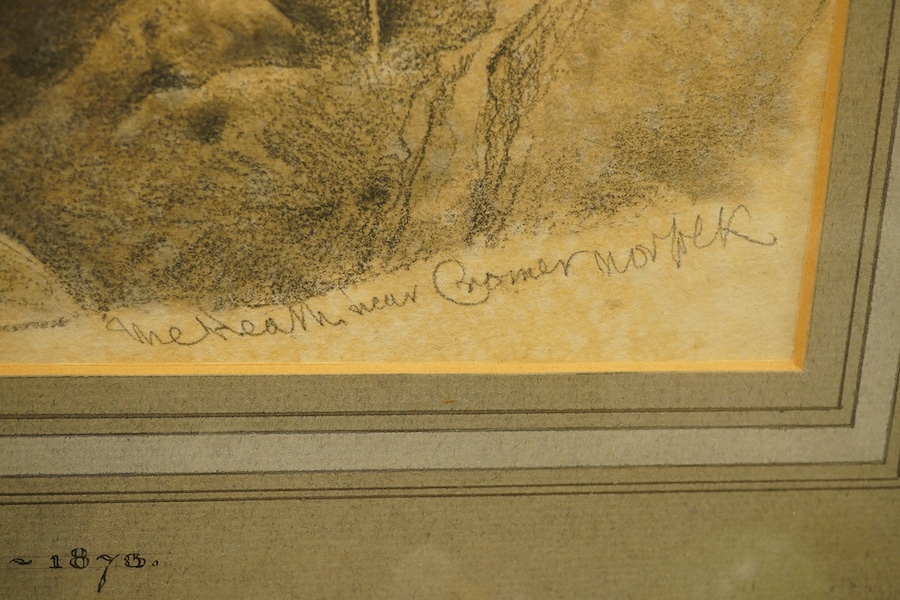 The Heath near Cromer Norfolk
~ 1873.